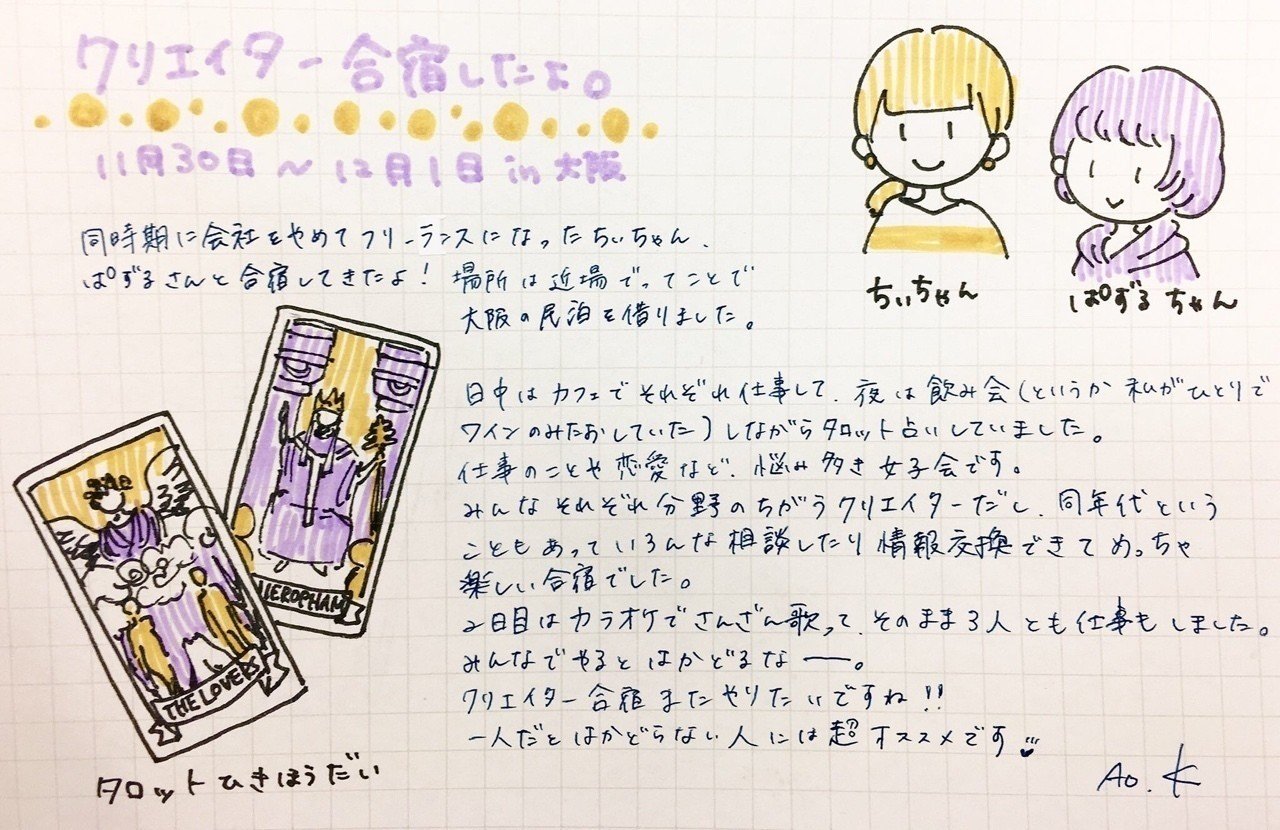 クリエイター合宿したよ。
11月30日〜12月1日 in 大阪
ちぃちゃん
ぱずるちゃん
同時期に会社をやめてフリーランスになったちぃちゃん、
ぱずるさんと合宿してきたよ！場所は近場でってことで
大阪の民泊を借りました。
日中はカフェでそれぞれ仕事して、夜は飲み会(というか私がひとりで
ワインのみたおしていた)しながらタロット占いしていました。
仕事のことや恋愛など、悩み多き女子会です。
みんなそれぞれ分野のちがうクリエイターだし、同年代という
こともあっていろんな相談したり情報交換できてめっちゃ
楽しい合宿でした。
2日目はカラオケでさんざん歌って、そのまま3人とも仕事もしました。
みんなでやるとはかどるなー。
クリエイター合宿またやりたいですね!!
一人だとはかどらない人には超オススメです
IEROPHAM
THE LOVERS
タロットひきほうだい
Ao.K